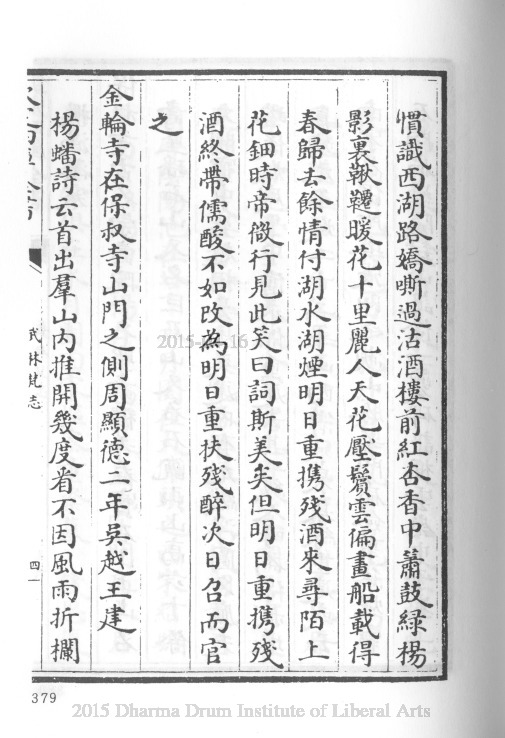 慣識西湖路嬌嘶過沽酒樓前紅杏香中簫鼓緑楊
影裏鞦韆暖花十里麗人天花壓鬢雲偏畫船載得
春歸去餘情付湖水湖煙明日重携殘酒來尋陌上
花鈿時帝微行見此笑曰詞斯美矣但明日重携殘
酒終帶儒酸不如改為明日重扶殘醉次日召而官
之
金輪寺在保叔寺山門之側周顯德二年吳越王建
楊蟠詩云首出羣山内推開幾度看不因風雨折欄
武林梵志
四一
379
2015 Dharma Drum Institute of Liberal Arts